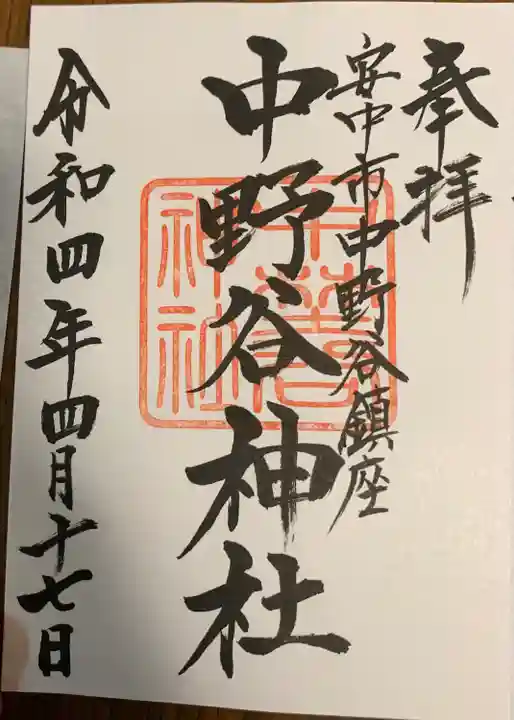 奉拝
安中市中野谷鎮座
中野谷神社
神社
令和四年四月十七日